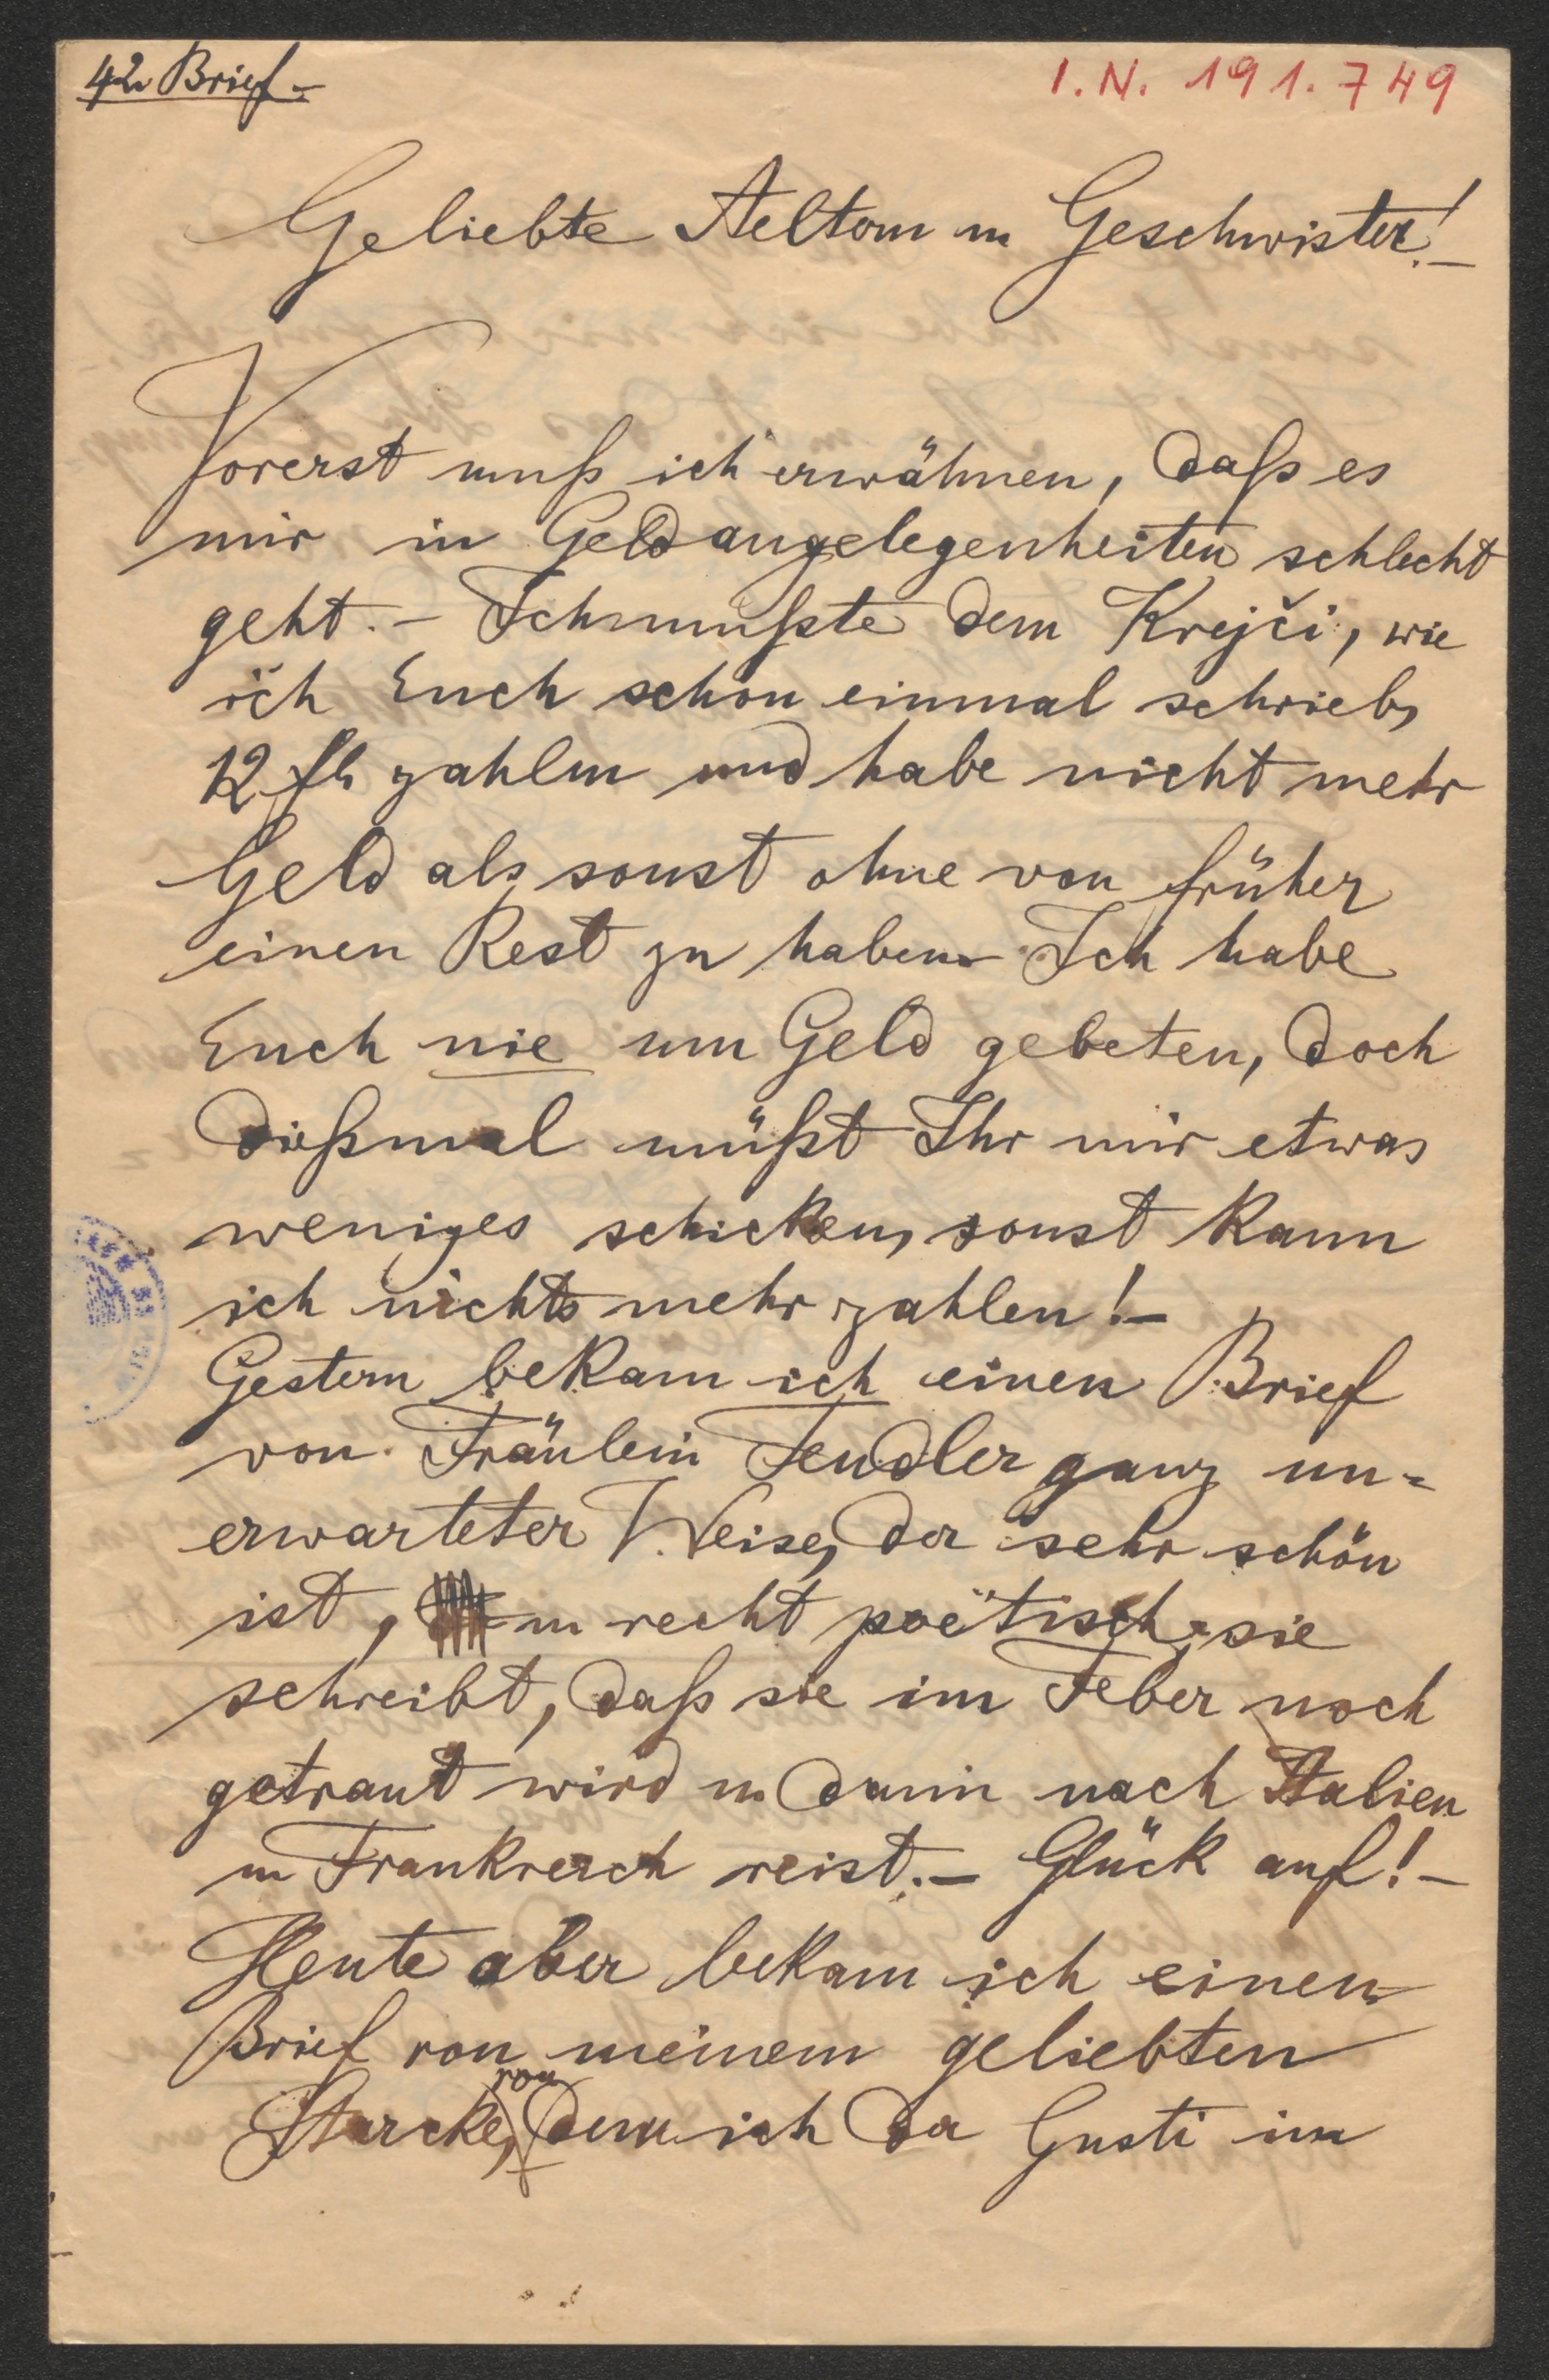 42. Brief.–
I.N. 191.749
Geliebte Aeltern u. Geschwister!–
Vorerst muß ich erwähnen, daß es
mir in Geldangelegenheiten schlecht
geht.– Ich mußte dem Krejči, wie
ich Euch schon einmal schrieb,
12 fl. zahlen und habe nicht mehr
Geld als sonst ohne von früher
einen Rest zu haben.– Ich habe
Euch nie um Geld gebeten, doch
dießmal müßt Ihr mir etwas
weniges schicken, sonst kann
ich nichts mehr zahlen!–
Gestern bekam ich einen Brief
von Fräulein Fendler ganz un=
erwarteter Weise, der sehr schön
ist, u. recht poëtisch, sie
schreibt, daß sie im Feber noch
getraut wird u. dann nach Italien
u. Frankreich reist.– Glück auf!–
Heute aber bekam ich einen
Brief von meinem geliebten
Starcke, von dem ich da Gusti im